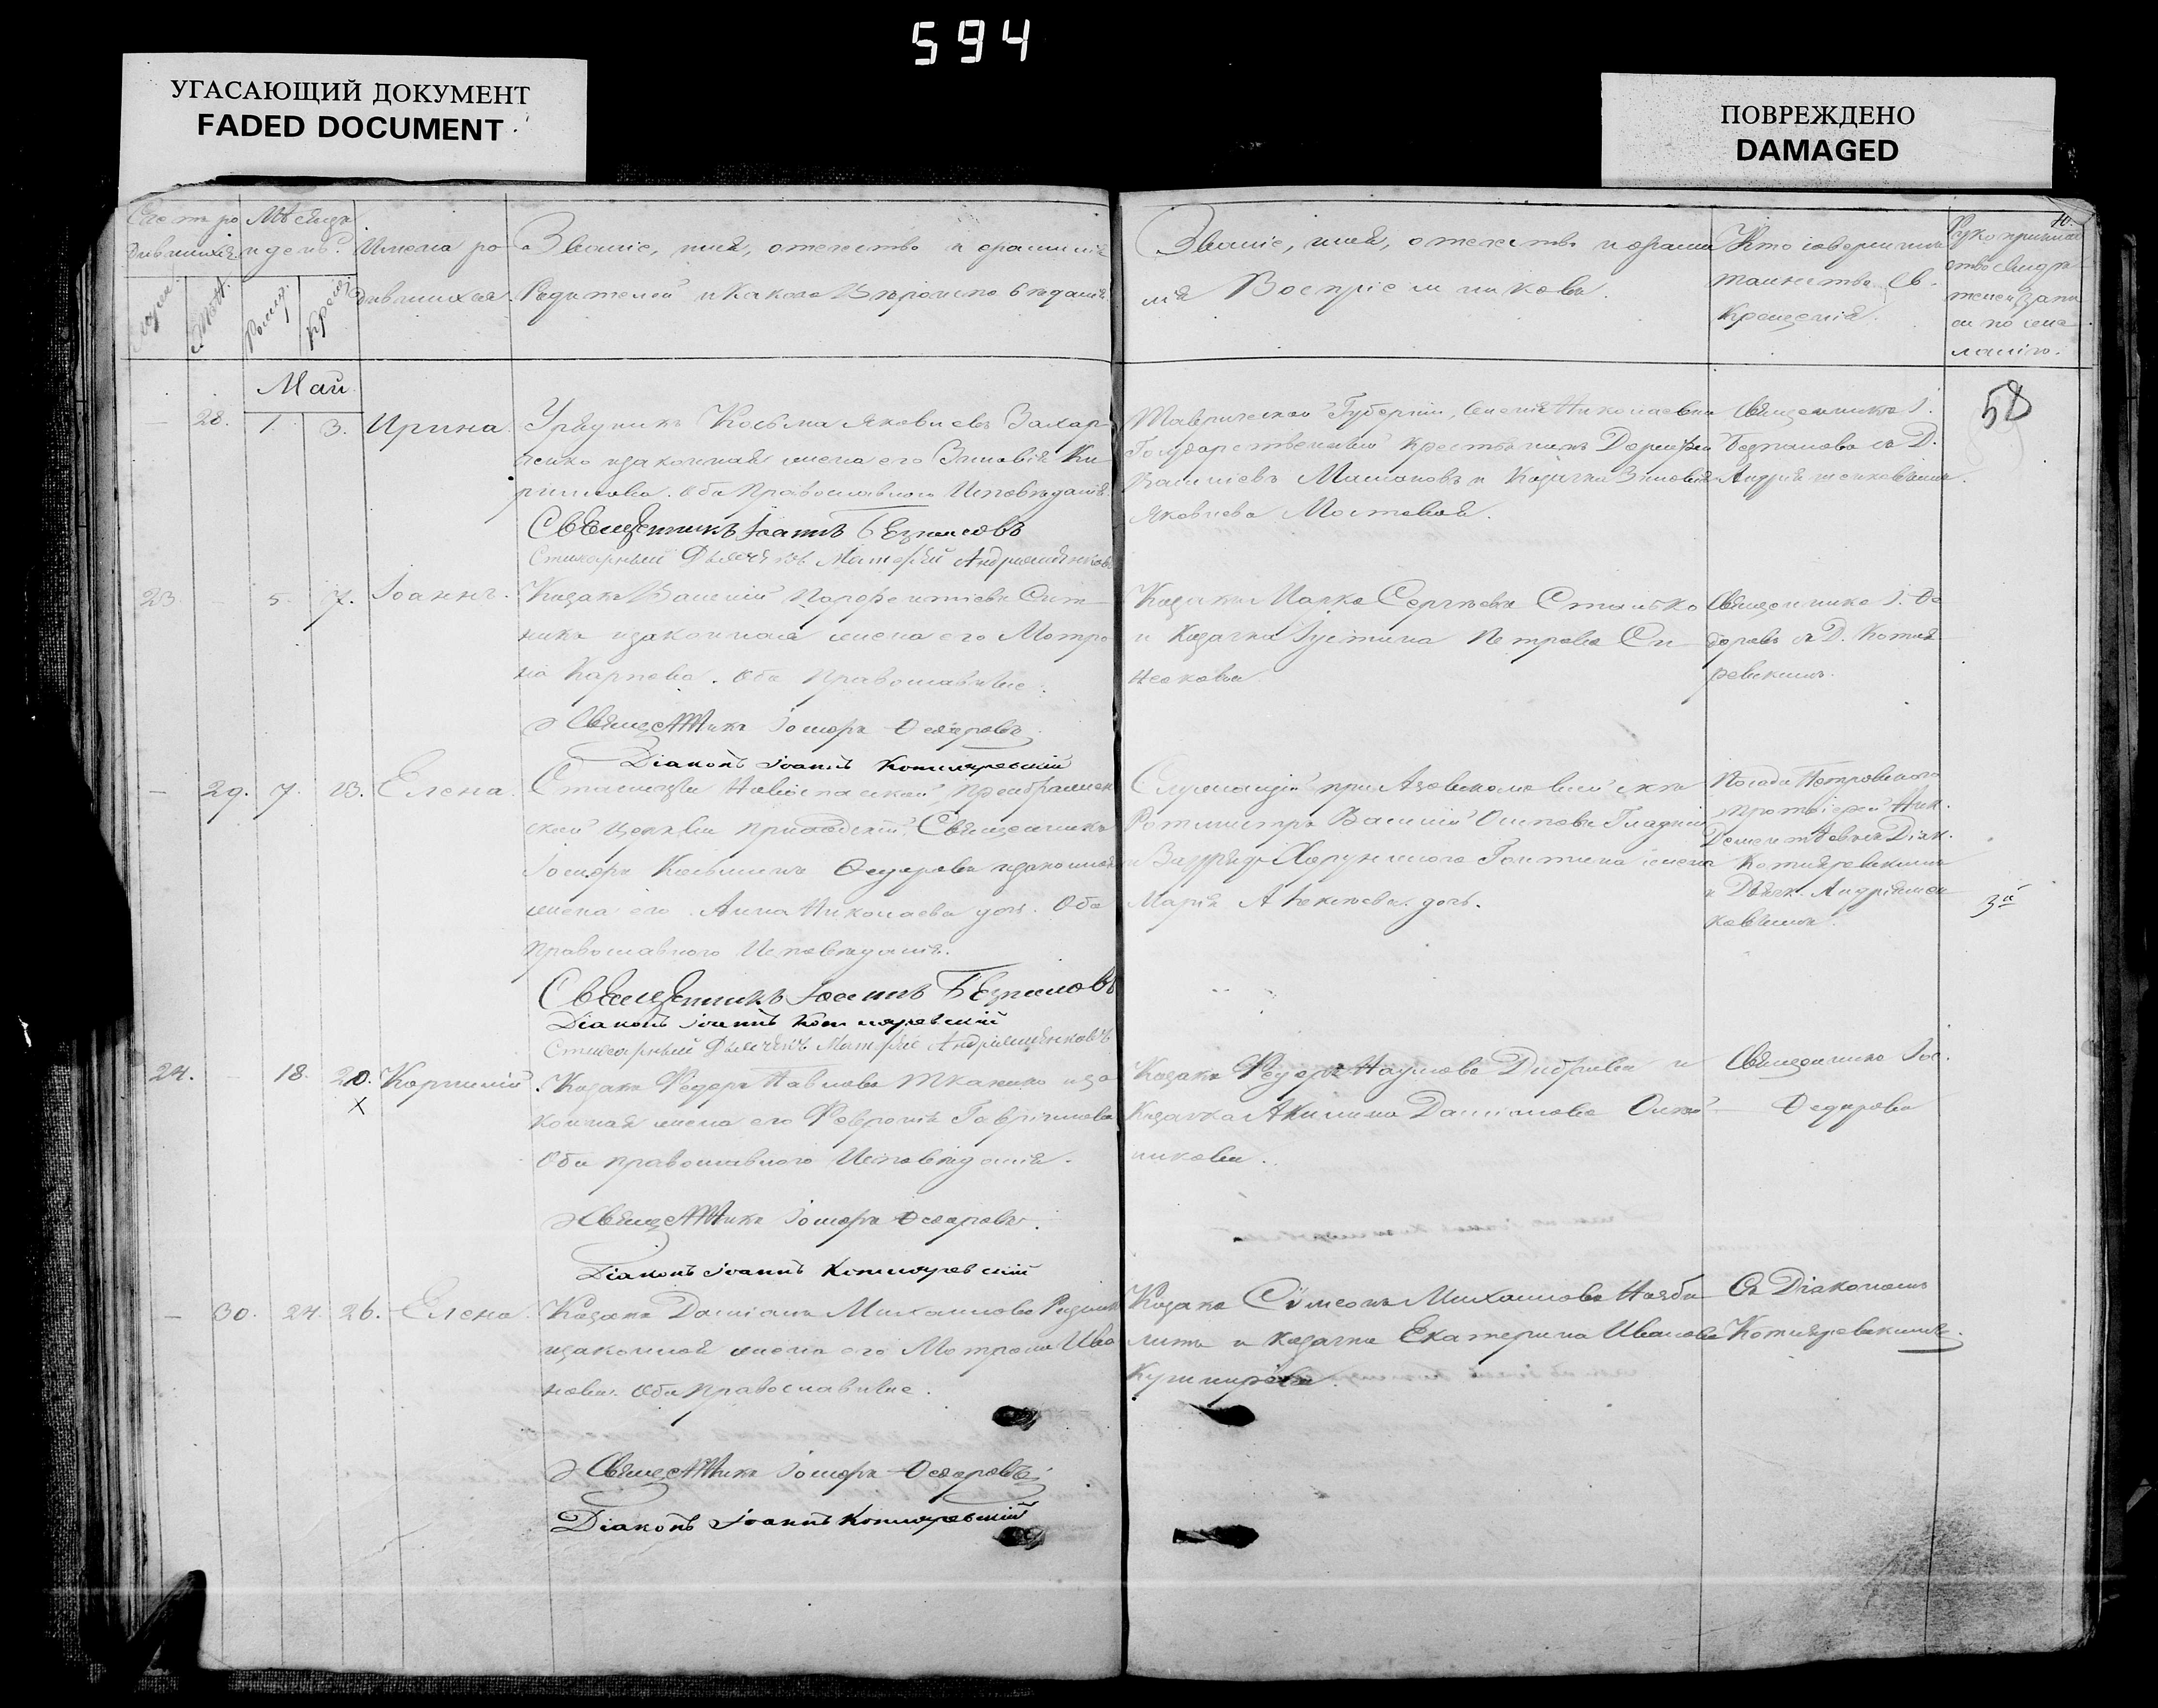 594
УГАСАЮЩИЙ ДОКУМЕНТ
FADED DOCUMENT
ПОВРЕЖДЕНО
DAMAGED
Счетъ ро
дившихся
Мѣсяцъ
и день
Имена ро
дившихся
Званіе, имя, отечество и фамилія
Родителей и какого Вѣроисповѣданія
Званіе, имя, отечество и фами
лія Воспріемниковъ.
Кто совершилъ
таинство Св.
Крещенія.
40.
Май
28. 1. 3. Ирина.
Урядникъ Косьма Яковлевъ Захар
ченко и законная жена его Зиновія Ки
риллова. Оба Православнаго Исповѣданія.
Священникъ Іоаннъ Безпаловъ
Стихарный Дьячёкъ Матфей Андріяшенковъ
Таврической Губерніи, Николаевки
Государственный крестьянинъ
Васильевъ и Козачка Зиновія
Яковлева Мостовая.
Священникъ І.
Безпаловъ съ Д.
Андріяшенковымъ.
58
23 5. 7. Іоаннъ.
Козакъ Василій Парфентіевъ Сит
никъ и законная жена его Матро
на Карпова. Оба Православные.
Священникъ Іосифъ Ѳедоровъ
Діаконъ Іоаннъ Котляревскій
Козакъ Марко Сергѣевъ Сталько
и Козачка Іустина Петрова Си
Священникъ І. Ѳе
доровъ съ Д. Котля
ревскимъ.
29. 7. 13. Елена.
Станицы Новоспаской, Преображен
ской Церкви Приходскій Священникъ
Іосифъ Косьминъ Ѳедоровъ и законная
жена его Анна Николаева дочь. Оба
Православнаго Исповѣданія.
Священникъ Іоаннъ Безпаловъ
Діаконъ Іоаннъ Котляревскій
Стихарный Дьячёкъ Матфей Андріяшенковъ
Служащій при Азовскомъ войскѣ
Ротмистръ Василій Осиповъ Гладкій
и Хорунжаго жена
Марія Алексѣева дочь.
Посада Петровскаго
Протоіерей Ник.
Дементьевъ съ Діак.
Котляревскимъ
и Дьячк. Андріяшен
ковымъ.
3й
24. 18. 20. Корнилій
х
Козакъ Федоръ Павловъ Ткаченко и за
конная жена его Февронія Гавріилова
Оба православнаго Исповѣданія.
Священникъ Іосифъ Ѳедоровъ.
Діаконъ Іоаннъ Котляревскій
Козакъ Федоръ Наумовъ Дибрива и
Козачка Акилина Даніилова
никова.
Священникъ Іос.
Ѳедоровъ
30. 24. 26. Елена.
Козакъ Даміанъ Михаиловъ
и законная жена его Матрона Ива
нова. Оба Православные.
Священникъ Іосифъ Ѳедоровъ
Діаконъ Іоаннъ Котляревскій
Козакъ Симеонъ Михаиловъ
и козачка Екатерина Иванова
Съ Діакономъ
Котляревскимъ.